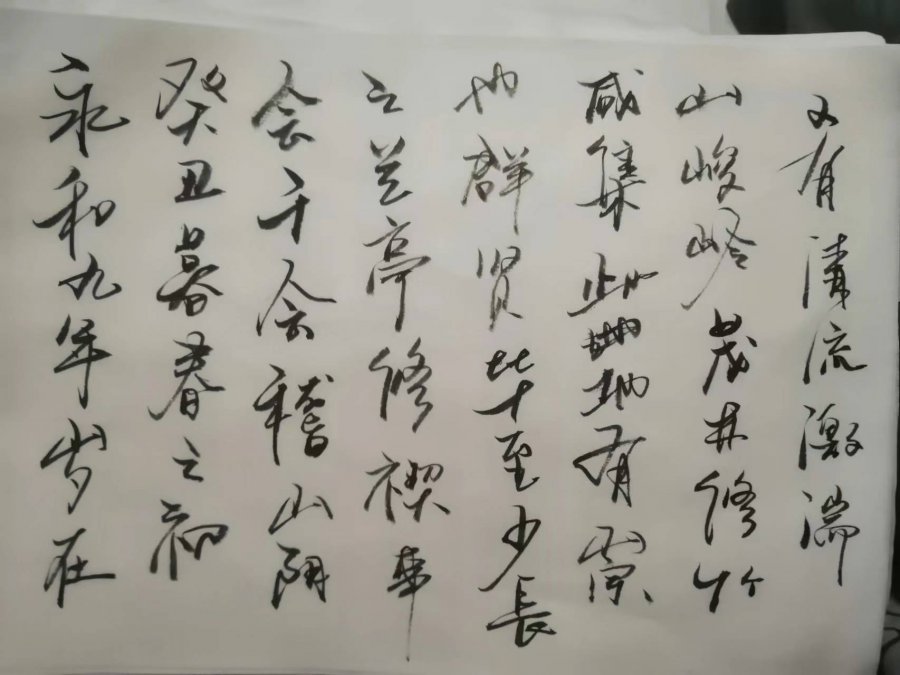 永和九年岁在
癸丑暮春之初
会于会稽山阴
之兰亭修禊事
也群贤毕至少长
咸集此地有崇
山峻岭茂林修竹
又有清流激湍